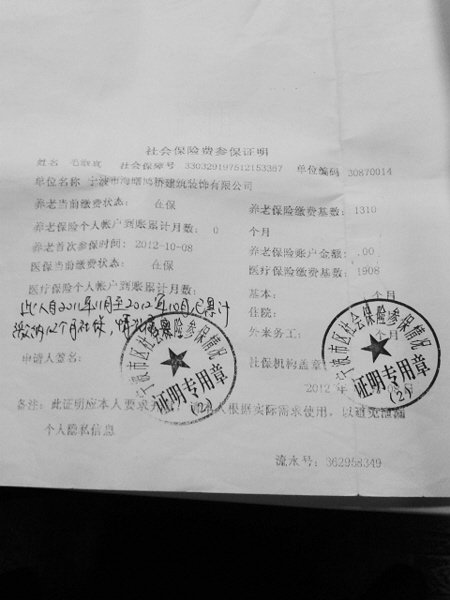 社会保险费参保证明
姓名 社会保障号 330329197512153367 单位编码 30870014
单位名称 宁波市海曙鸿桥建筑装饰有限公司
养老当前缴费状态: 在保 养老保险缴费基数: 1310
养老保险个人帐户到账累计月数: 0 个月
养老首次参保时间: 2012-10-08 养老保险账户金额: .00
医保当前缴费状态: 在保 医疗保险缴费基数: 1908
医疗保险个人帐户到账累计月数: 基本: 个月
此人自2011年11月至2012年10月已累计 住院:
缴纳12个月社保, 情况 外来务工: 个月
申请人签名: 社保机构盖章
2012 年
宁波市区社会保险参保情况
证明专用章
(2)
宁波市区社会保险参保情况
证明专用章
(2)
备注: 此证明应本人要求 人根据实际需求使用, 以避免泄漏
个人隐私信息
流水号: 362958349